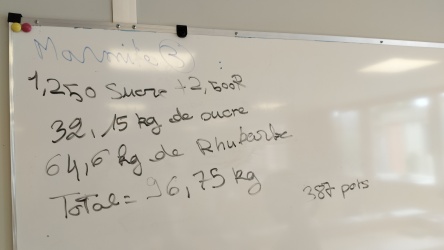 Marmite(s)
1,250 Sucre + 2,500R
32,15 kg de sucre
64,6 kg de Rhubarbe
Total = 96,75 kg
387 pots